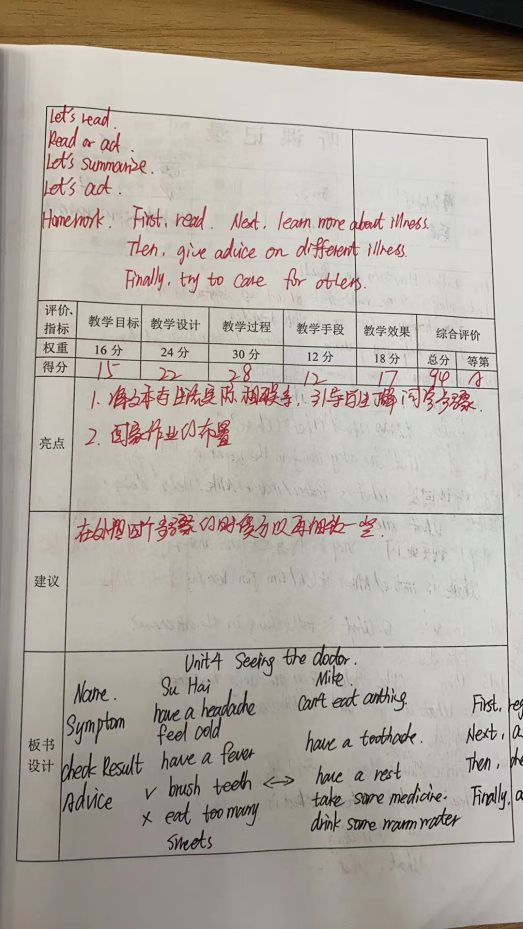 Let's read.
Read or act.
Let's summarize.
Let's act.
Homework. First, read. Next, learn more about illness.
Then, give advice on different illness.
Finally, try to care for others.
评价、指标 教学目标 教学设计 教学过程 教学手段 教学效果 综合评价
权重 16 分 24 分 30 分 12 分 18 分 总分 等第
得分 15 22 28 12 17 94 A
亮点
1. 将文本与生活实际相联系,引导学生了解问诊步骤.
2. 回家作业的布置
建议
在处理四个步骤的时候可以再细致一些.
板书设计
Unit4 Seeing the doctor.
Name. Su Hai Mike.
Symptom have a headache Can't eat anthing. First, reg
feel cold Next, a
check Result have a fever have a toothache. Then, che
Advice √ brush teeth ↔ have a rest Finally, a
× eat too many take some medicine.
sweets drink some warm water